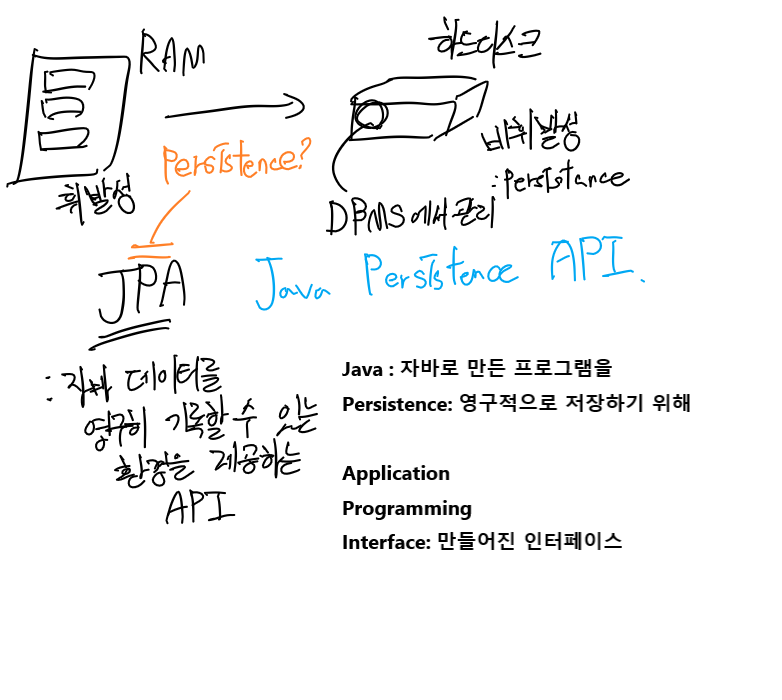 RAM
하드디스크
비휘발성
: Persistance
Persistence?
휘발성
DBMS에서 관리
JPA
Java Persistence API.
: 자바 데이터를
영구히 기록할 수 있는
환경을 제공하는
API
Java : 자바로 만든 프로그램을
Persistence: 영구적으로 저장하기 위해
Application
Programming
Interface: 만들어진 인터페이스